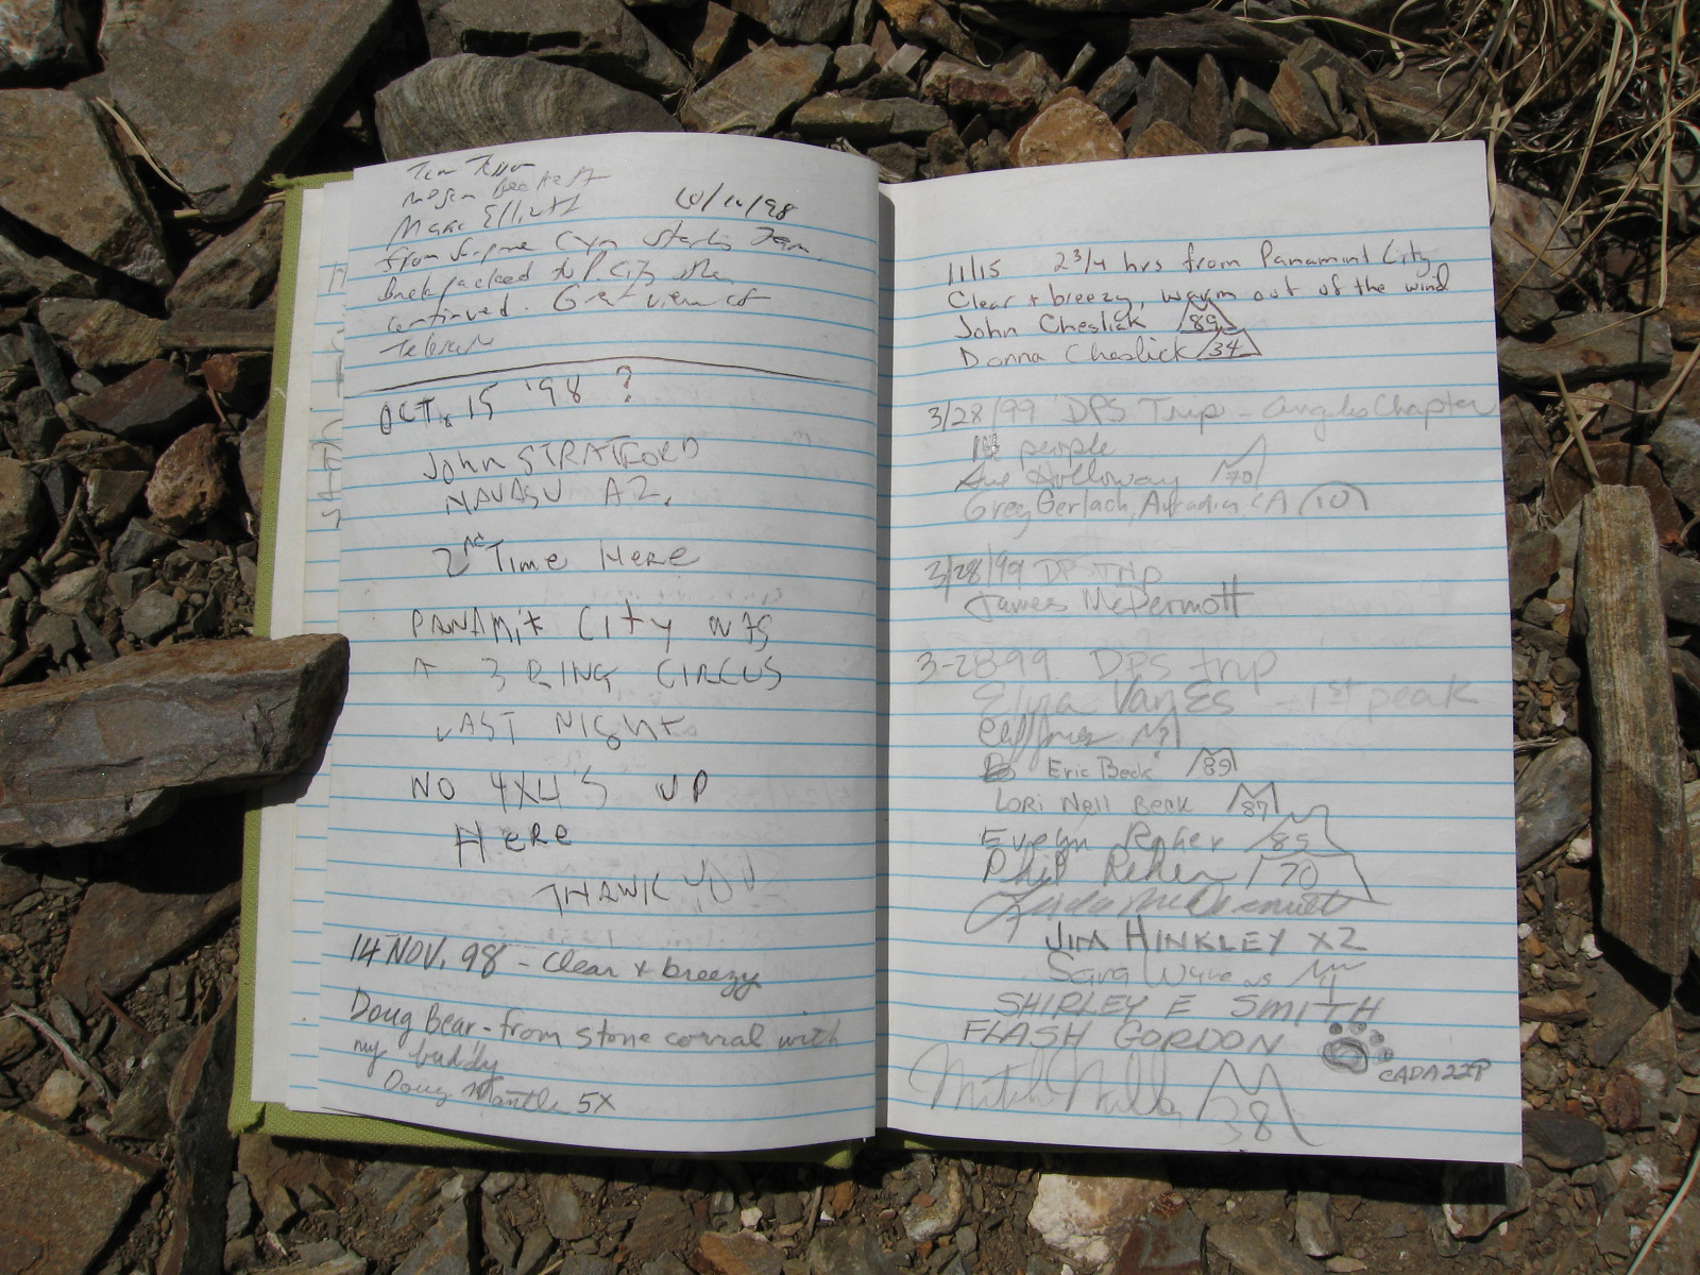 Marc Elliott 10/11/98
from Surprise Cyn
backpacked to P. City then
continued. Great view of
Telescope
OCT. 15 '98 ?
John STRATFORD
HAVASU AZ.
2nd Time Here
PANAMiT CiTy WAS
A 3 RING CIRCUS
LAST NIGHT
NO 4X4'S UP
HeRe
THANK YOU
14 NOV. 98 - Clear + breezy
Doug Bear - from stone corral with
my buddy
Doug Mantle 5X
11/15 2 3/4 hrs from Panamint City
Clear + breezy, warm out of the wind
John Cheslick 89
Donna Cheslick 34
3/28/99 DPS Trip - Angeles Chapter
people
Sue Holloway 70
Greg Gerlach, Arcadia CA 10
3/28/99 DP Trip
James McDermott
3-28-99 DPS trip
Elysa VanEs - 1st peak
Eric Beck 89
LORi Nell Beck 87
Evelyn Reher 85
Phil Reher 70
Linda McDermott
JIM HINKLEY X2
SHIRLEY E SMITH
FLASH GORDON
Mitch Miller 38